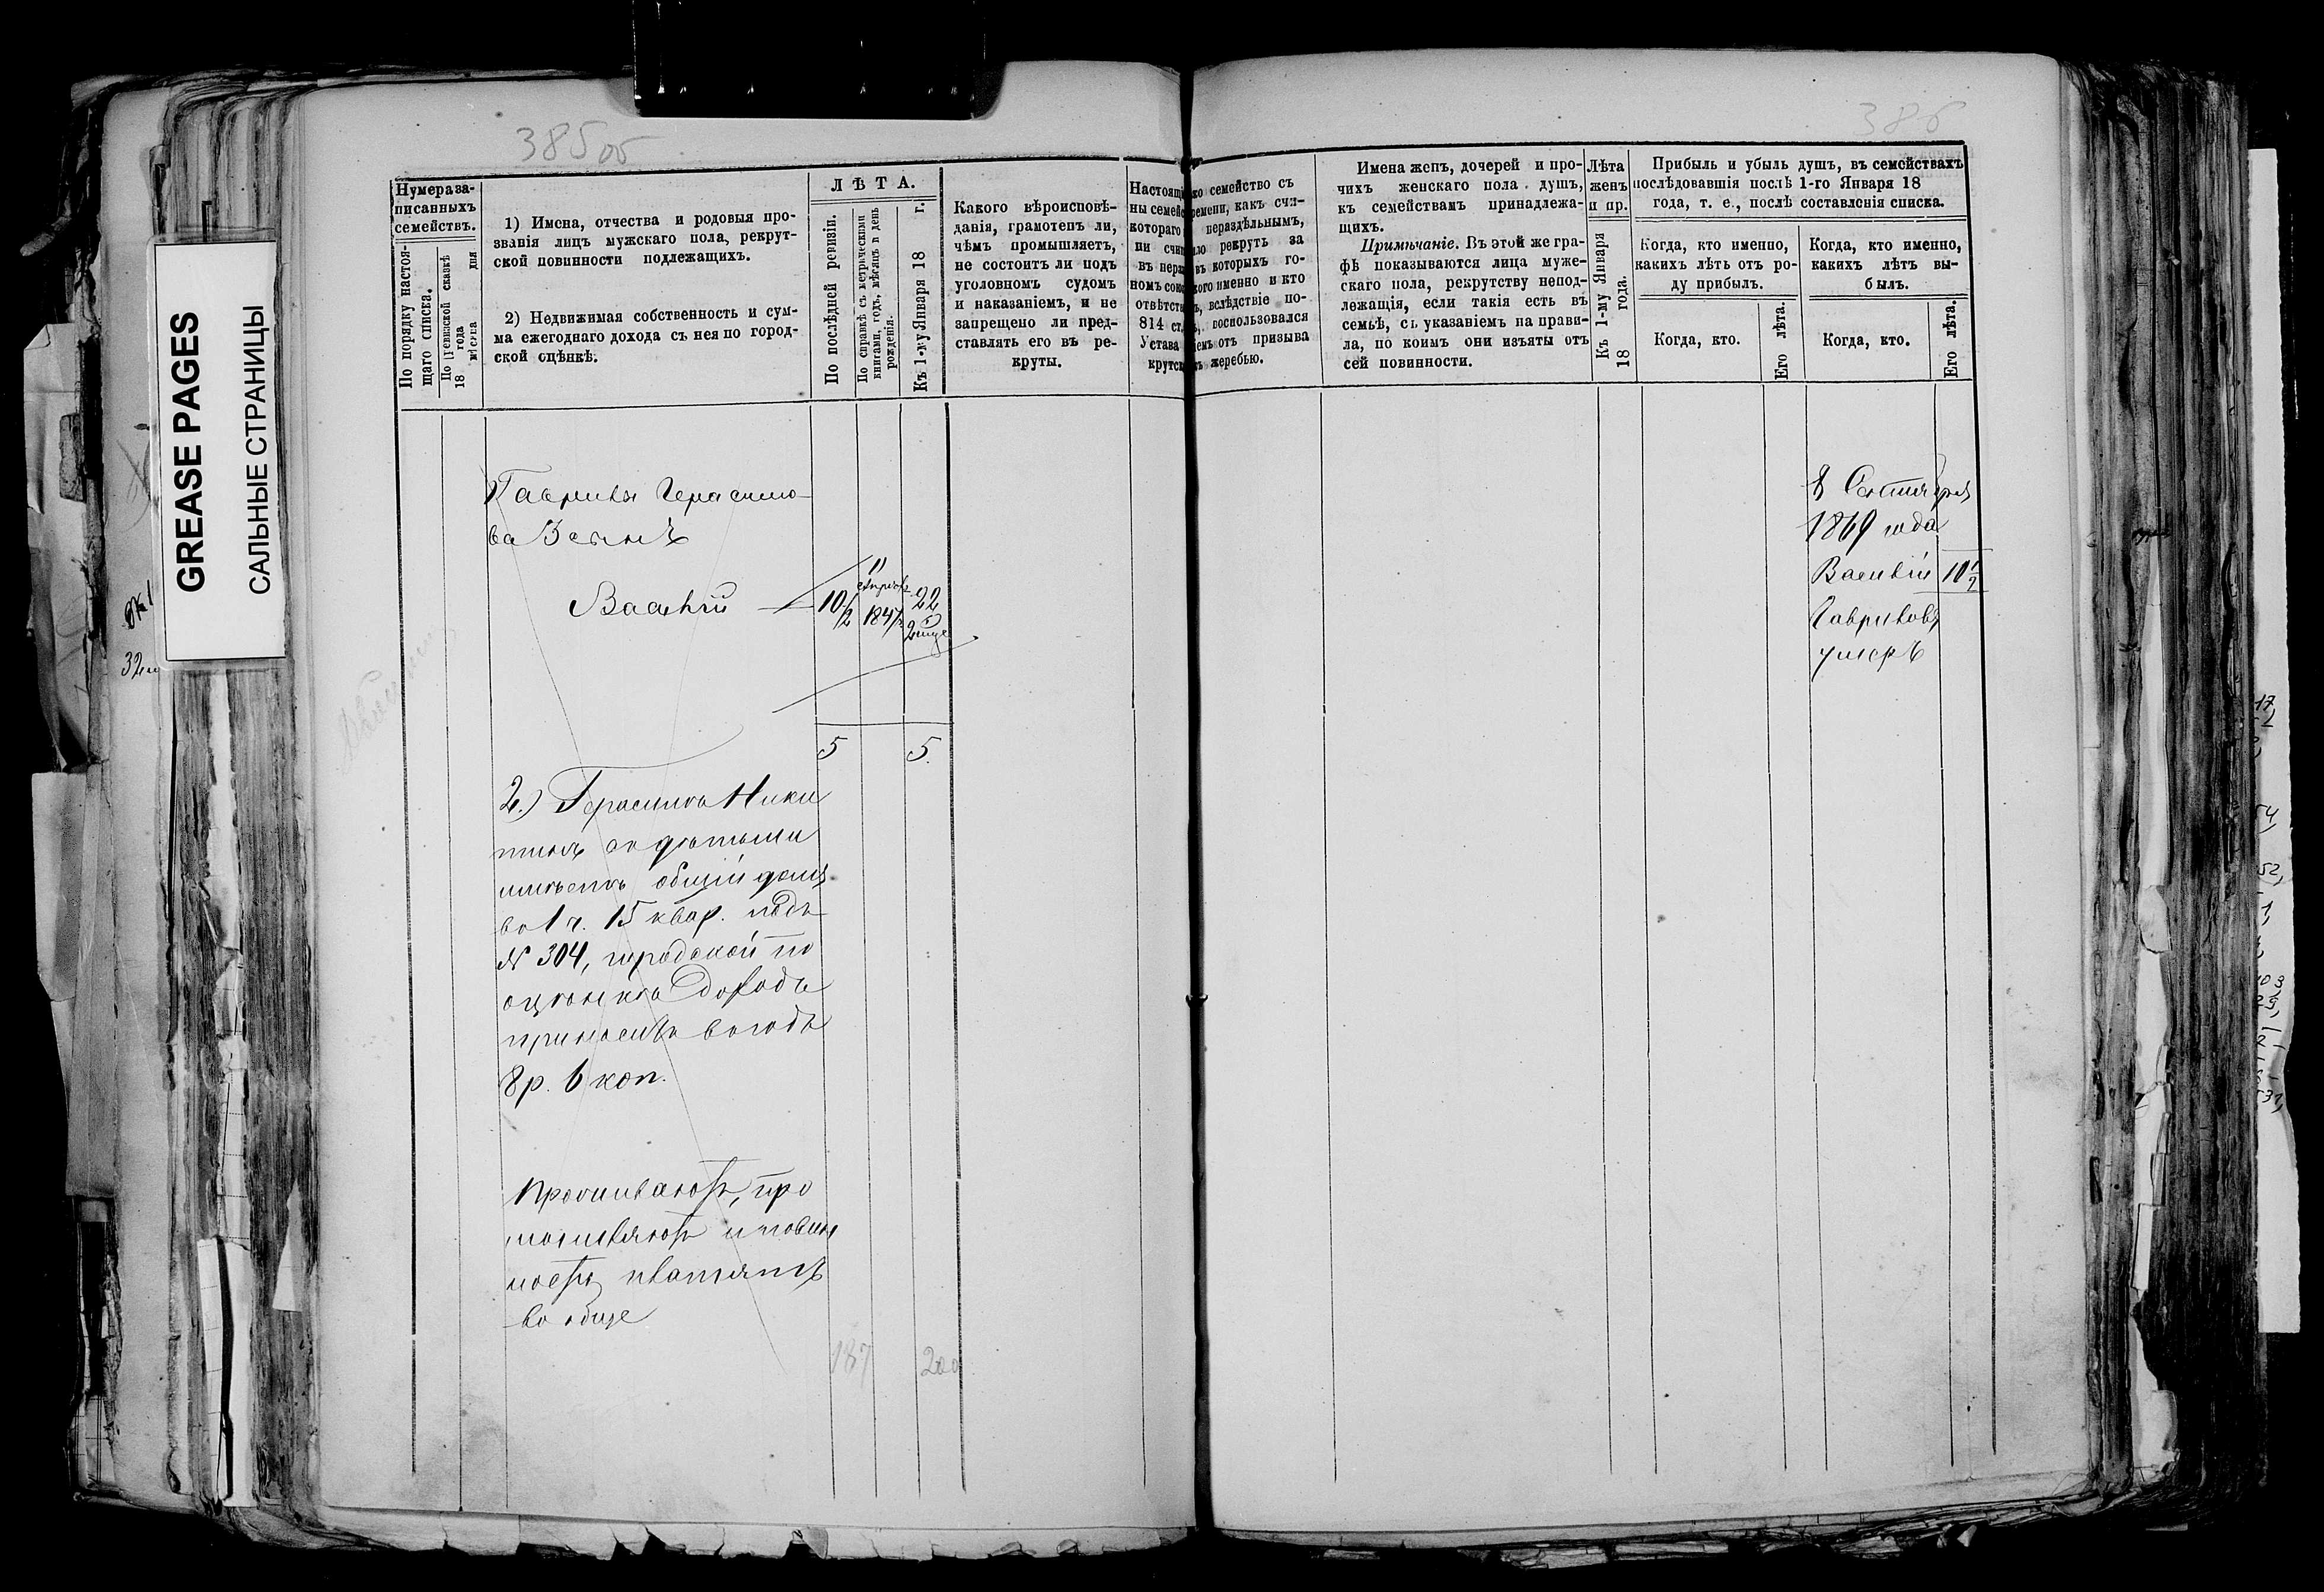 385 об
386
GREASE PAGES
САЛЬНЫЕ СТРАНИЦЫ
Нумера за-
писанныхъ
семействъ.
По порядку настоя-
щаго списка.
По ревизской сказкѣ
18 года
мѣсяца дня
1) Имена, отчества и родовыя про-
званія лицъ мужскаго пола, рекрут-
ской повинности подлежащихъ.
2) Недвижимая собственность и сум-
ма ежегоднаго дохода съ нея по город-
ской оцѣнкѣ.
ЛѢТА.
По послѣдней ревизіи.
По справкѣ съ метрическими
книгами, годъ, мѣсяцъ и день
рожденія.
Къ 1-му Января 18 г.
Какого вѣроисповѣ-
данія, грамотенъ ли,
чѣмъ промышляетъ,
не состоитъ ли подъ
уголовномъ судомъ
и наказаніемъ, и не
запрещено ли пред-
ставлять его въ ре-
круты.
Настоящ
ны семей
котораго
ли счи
въ нера
номъ сою
отвѣтст
814 ст.
Устава
крутск
ко семейство съ
ремени, какъ счи-
нераздѣльнымъ,
ло рекрутъ за
въ которыхъ го-
кого именно и кто
ъ, вслѣдствіе по-
ъ, воспользовался
іемъ отъ призыва
ъ жеребью.
Имена женъ, дочерей и про-
чихъ женскаго пола душъ,
къ семействамъ принадлежа-
щихъ.
Примѣчаніе. Въ этой же гра-
фѣ показываются лица муже-
скаго пола, рекрутству непод-
лежащія, если такія есть въ
семьѣ, съ указаніемъ на прави-
ла, по коимъ они изъяты отъ
сей повинности.
Лѣта
женъ
и пр.
Къ 1-му Января
18 года.
Прибыль и убыль душъ, въ семействахъ
послѣдовавшія послѣ 1-го Января 18
года, т. е., послѣ составленія списка.
Когда, кто именно,
какихъ лѣтъ отъ ро-
ду прибылъ.
Когда, кто.
Его лѣта.
Когда, кто именно,
какихъ лѣтъ вы-
былъ.
Когда, кто.
Его лѣта.
Гаврилы Герасимо-
ва сынъ
Василій 10 1/2 11 Апрѣля 1847 22
5 5.
2.) Герасимъ Ники
тинъ съ дѣтьми
имѣетъ общій домъ
въ 1 ч. 15 квар. подъ
№ 304, городской по
оцѣнкѣ доходъ
приноситъ въ годъ
8 р. 6 коп.
Проживаютъ, про
мышляютъ и повин
ность платятъ
вообще
187 200
8 Сентября
1869 года
Василій 10 1/2
Гавриловъ
умеръ